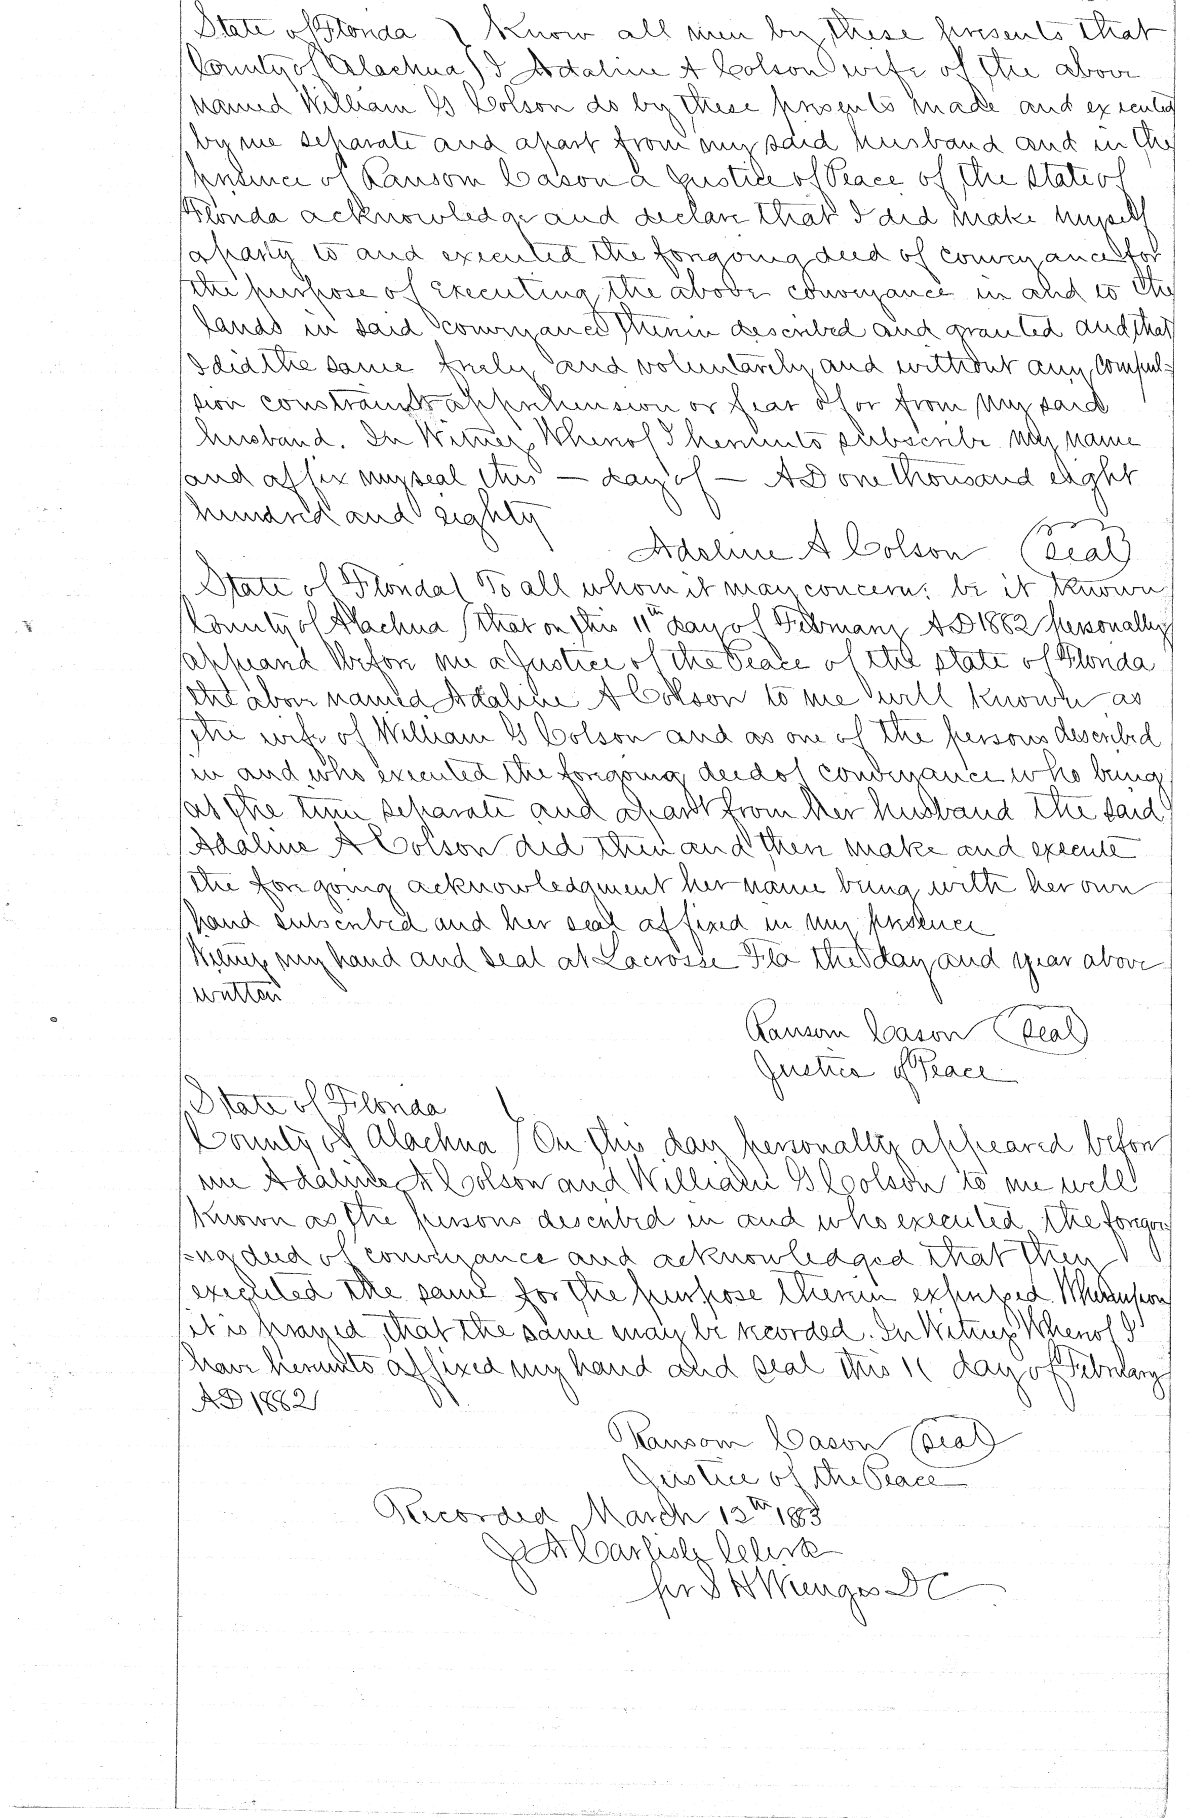 State of Florida } Know all men by these presents that
County of Alachua } I Adaline A Colson wife of the above
named William G Colson do by these presents made and executed
by me separate and apart from my said husband and in the
presence of Ransom Cason a Justice of Peace of the state of
Florida acknowledge and declare that I did make myself
a party to and executed the foregoing deed of conveyance for
the purpose of executing the above conveyance in and to the
lands in said conveyance therein described and granted and that
I did the same freely and voluntarily and without any compul-
sion constraint apprehension or fear of or from my said
husband. In Witness Whereof I hereunto subscribe my name
and affix my seal this — day of — AD one thousand eight
hundred and eighty
Adaline A Colson (seal)
State of Florida } To all whom it may concern: be it known
County of Alachua } that on this 11th day of February AD 1882 personally
appeared before me a Justice of the Peace of the state of Florida
the above named Adaline A Colson to me well known as
the wife of William G Colson and as one of the persons described
in and who executed the foregoing deed of conveyance who being
at the time separate and apart from her husband the said
Adaline A Colson did then and there make and execute
the foregoing acknowledgment her name being with her own
hand subscribed and her seal affixed in my presence
Witness my hand and seal at Lacrosse Fla the day and year above
written
Ransom Cason (seal)
Justice of Peace
State of Florida }
County of Alachua } On this day personally appeared before
me Adaline A Colson and William G Colson to me well
known as the persons described in and who executed the foregoi
=ng deed of conveyance and acknowledged that they
executed the same for the purpose therein expressed Whereupon
it is prayed that the same may be recorded. In Witness Whereof I
have hereunto affixed my hand and seal this 11 day of February
AD 1882
Ransom Cason (seal)
Justice of the Peace
Recorded March 12th 1883
J A Carlisle Clerk
per S H Wienges DC